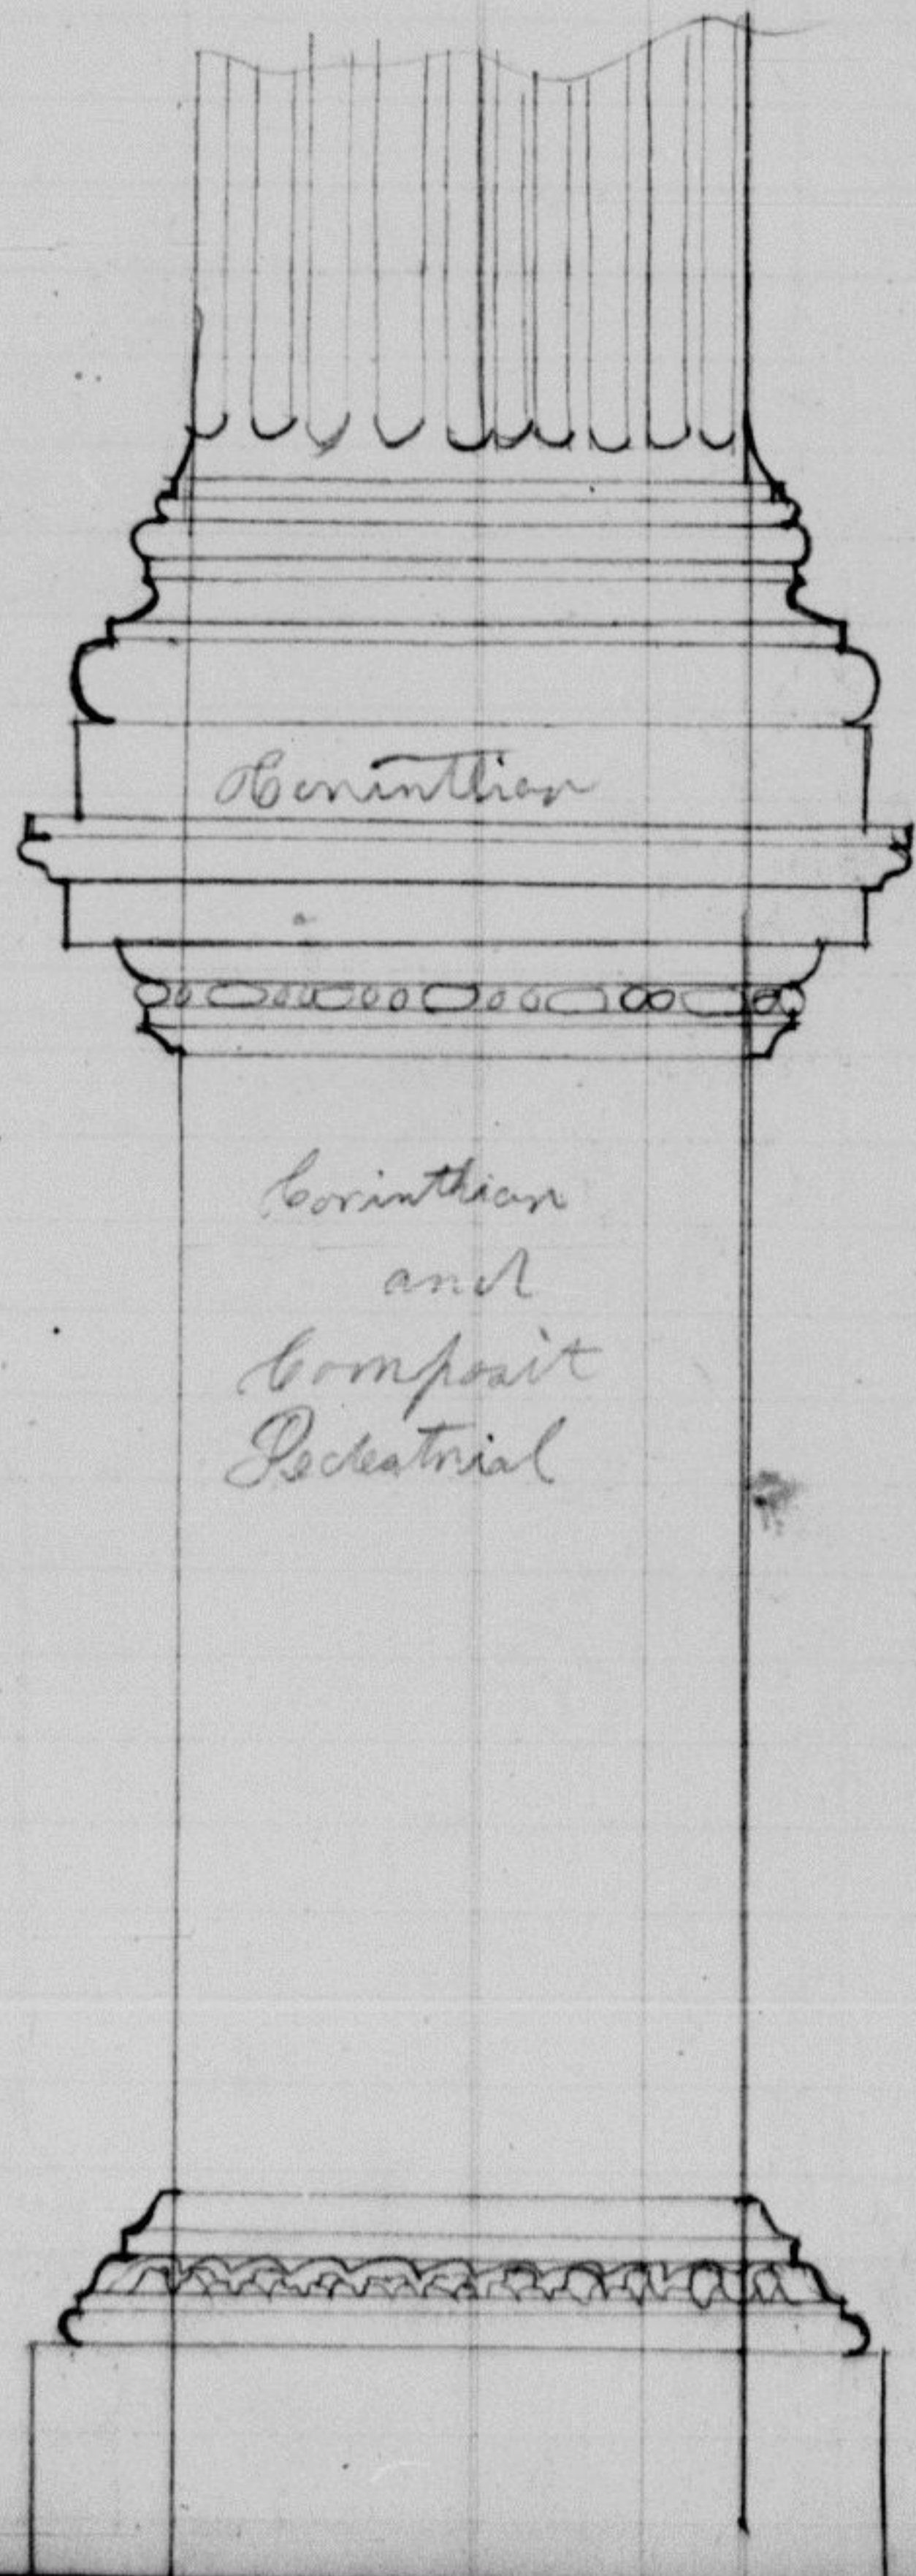 Corinthian
Corinthian
and
Composit
Pedestrial